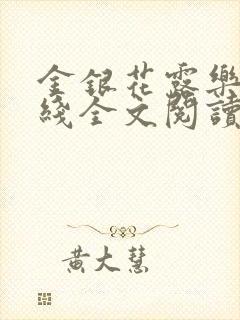 金銀花露樂
綫全文閱讀
黃大慧